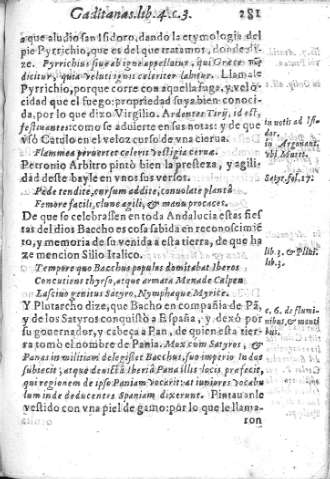 Gaditanas.lib.4.c.3. 281
a que aludio san Isidoro, dando la etymologia del
pie Pyrrichio, que es del que tratamos, donde di-
ze. Pyrrhichius siue ab igne appellatur, qui Græcè
dicitur, quia veluti ignis celeriter labitur. Llamale
Pyrrichio, porque corre con aquella fuga, y velo
cidad que el fuego: propriedad suya bien conoci-
da, por lo que dixo Virgilio. Ardentes Tirij, id est,
festinantes: como se aduierte en sus notas: y de que
vsò Catulo en el veloz curso de vna cierua.
Flammea peruertet celeri vestigia cerua.
Petronio Arbitro pintò bien la presteza, y agili-
dad deste bayle en vnos sus versos.
Pède tendite, cursum addite, conuolate plantâ
Femore facili, clune agili, & manu procaces.
De que se celebrassen en toda Andaluzia estas fies
tas del dios Baccho es cosa sabida en reconoscimiē
to, y memoria de su venida a esta tierra, de que ha
ze mencion Silio Italico.
Tempore quo Bacchus populos domitabat Iberos
Concutiens thyrso, atque armata Menade Calpen
Lasciuo genitus Satyro, Nymphaque Myrice.
Y Plutarcho dize, que Bacho en compañia de Pā,
y de los Satyros conquistò a España, y dexò por
su gouernador, y cabeça a Pan, de quien esta tier-
ra tomò el nombre de Pania. Mox cum Satyros, &
Panas in militiam delegisset Bacchus, suo imperio Indos
subiecit; atque deuictâ Iberiâ Pana illis locis præfecit,
qui regionem de ipso Paniam vocarit: at iuniores vocabu
lum inde deducentes Spaniam dixerunt. Pintauanle
vestido con vna piel de gamo: por lo que le llama-
ron
in notis ad Isi-
dor.
in Argonaut.
vbi Muret.
Satyr. fol. 17.
lib. 3. & Plini.
lib. 3.
c. 6. de flumi-
nibus, & monti
bus.